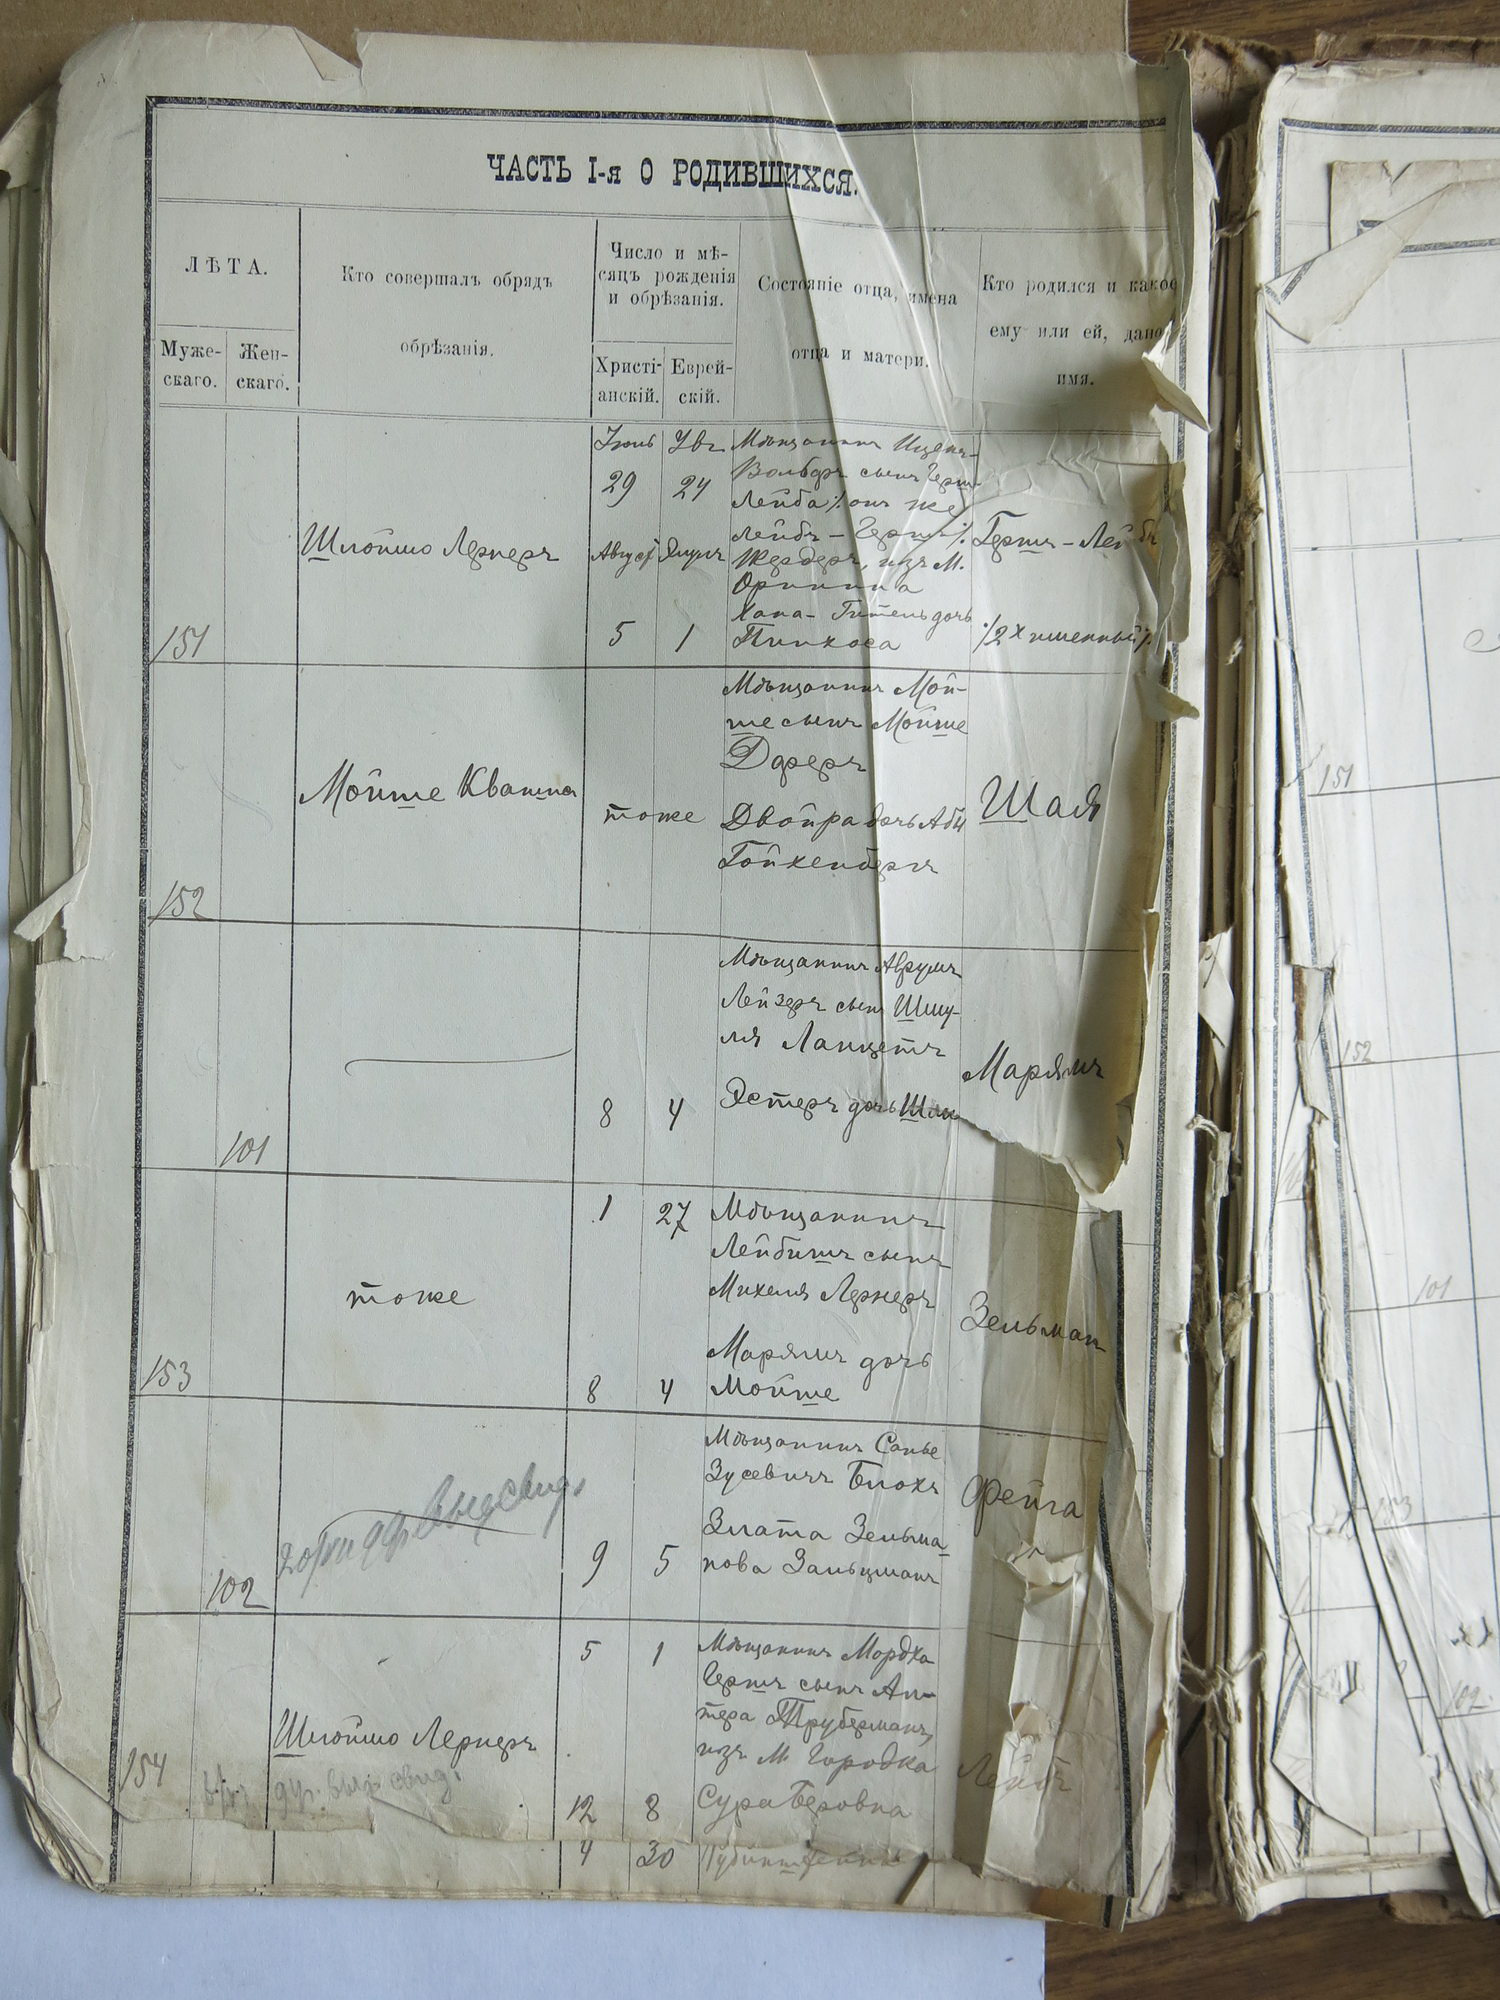 ЧАСТЬ I-я О РОДИВШИХСЯ.
ЛѢТА.
Муже-
скаго.
Жен-
скаго.
Кто совершалъ обрядъ
обрѣзанія.
Число и мѣ-
сяцъ рожденія
и обрѣзанія.
Христі-
анскій.
Еврей-
скій.
Состояніе отца, имена
отца и матери.
Кто родился и какое
ему или ей, дано
имя.
151
Шлоймо Лернеръ
Іюль
29
Август
5
24
1
Мѣщанинъ Иценъ-
Вольфъ сынъ Герш-
Лейба ./. онъ же
Лейбъ - Гершъ ./.
Жерберъ, изъ м.
Оринина
Хана - Гитель дочь
Пинхоса
Гершъ - Лейбъ
./. 2х именный ./.
152
Мойше Кваша
тоже
Мѣщанинъ Мой-
ше сынъ Мойше
Двойра дочь Абы
Гойхенбергъ
Шая
101
8
4
Мѣщанинъ Аврумъ
Лейзеръ сынъ Шму-
ля Ланцетъ
Эстеръ дочь
Марямъ
153
тоже
1
27
8
4
Мѣщанинъ
Лейбишъ сынъ
Михеля Лернеръ
Марямъ дочь
Мойше
Зельман
102
9
5
Мѣщанинъ Сапье
Зусевичъ Блохъ
Злата Зельма-
нова Зальцманъ
Фейга
154
Шлоймо Лернеръ
5
1
12
8
Мѣщанинъ Мордха
Гершъ сынъ Ал-
тера Труберманъ,
изъ м. Городка
Сура Беровна
Лейбъ
4
30
151
152
101
153
102